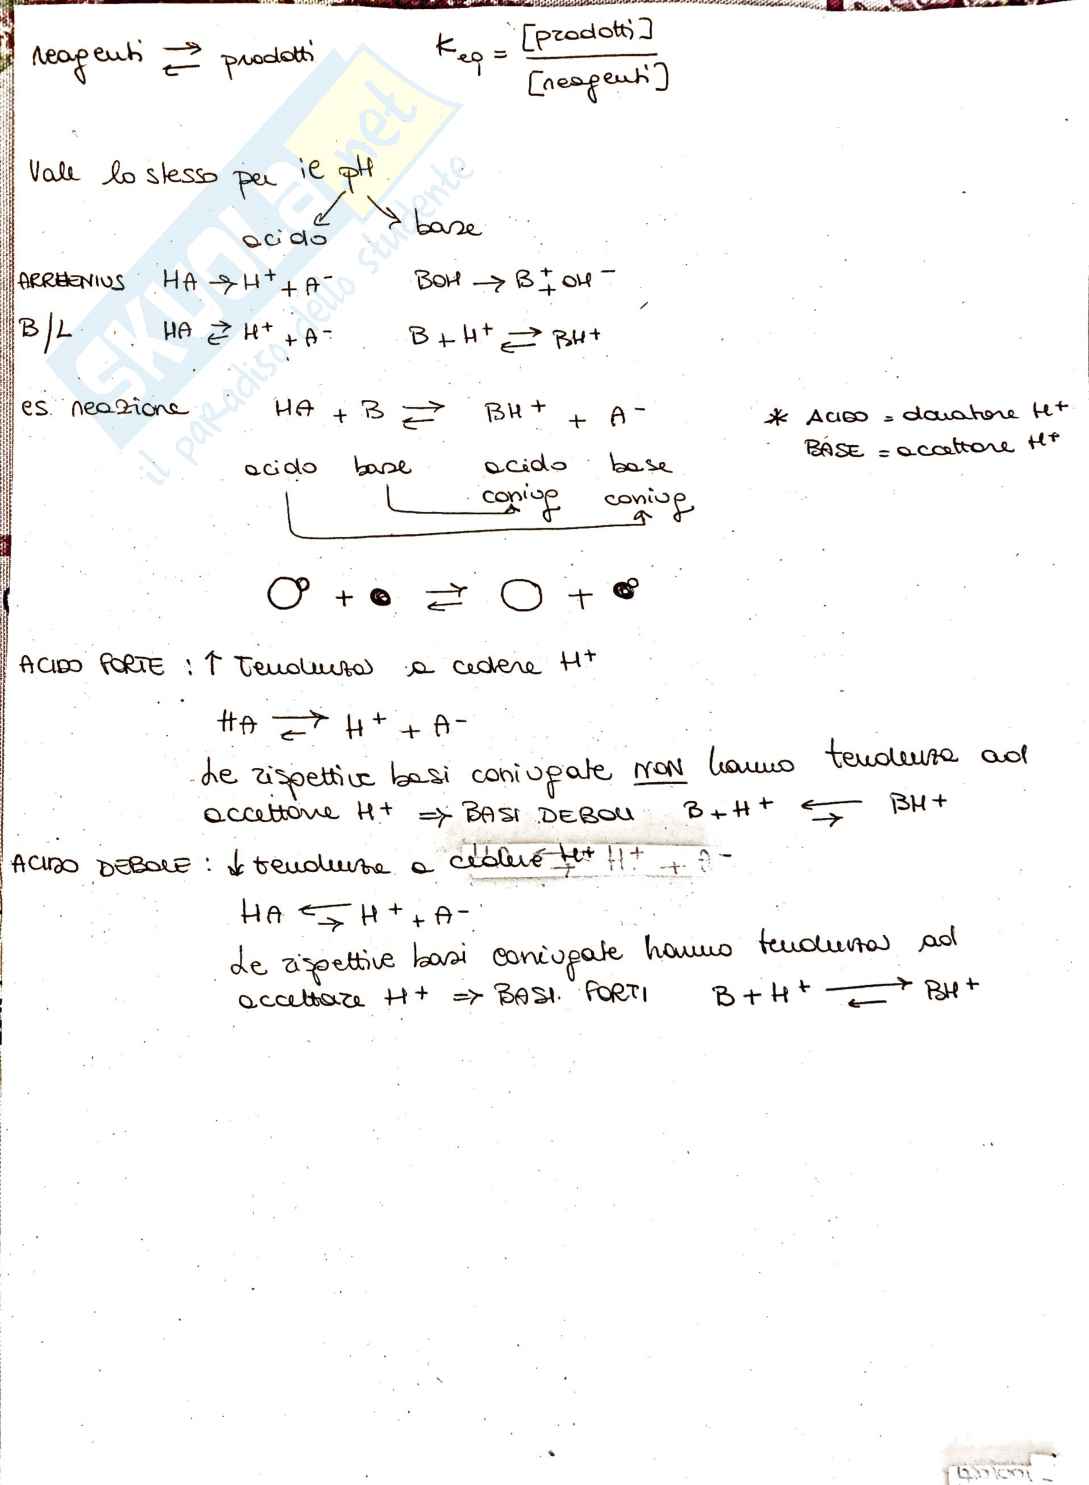 reagenti ⇌ prodotti   Keq = [prodotti] / [reagenti]
Vale lo stesso per il pH
acido   base
ARRHENIUS   HA → H+ + A-   BOH → B+ + OH-
B/L   HA ⇌ H+ + A-   B + H+ ⇌ BH+
es. reazione   HA + B ⇌ BH+ + A-
* ACIDO = donatore H+
BASE = accettore H+
acido   base   acido   base
coniug   coniug
+ ⇌ +
ACIDO FORTE : ↑ Tendenza a cedere H+
HA ⇌ H+ + A-
Le rispettive basi coniugate NON hanno tendenza ad
accettare H+ ⇒ BASI DEBOLI   B + H+ ⇌ BH+
ACIDO DEBOLE : ↓ tendenza a cedere H+ H+ + A-
HA ⇌ H+ + A-
Le rispettive basi coniugate hanno tendenza ad
accettare H+ ⇒ BASI FORTI   B + H+ ⇌ BH+
SKUOLA.net
il paradiso dello studente